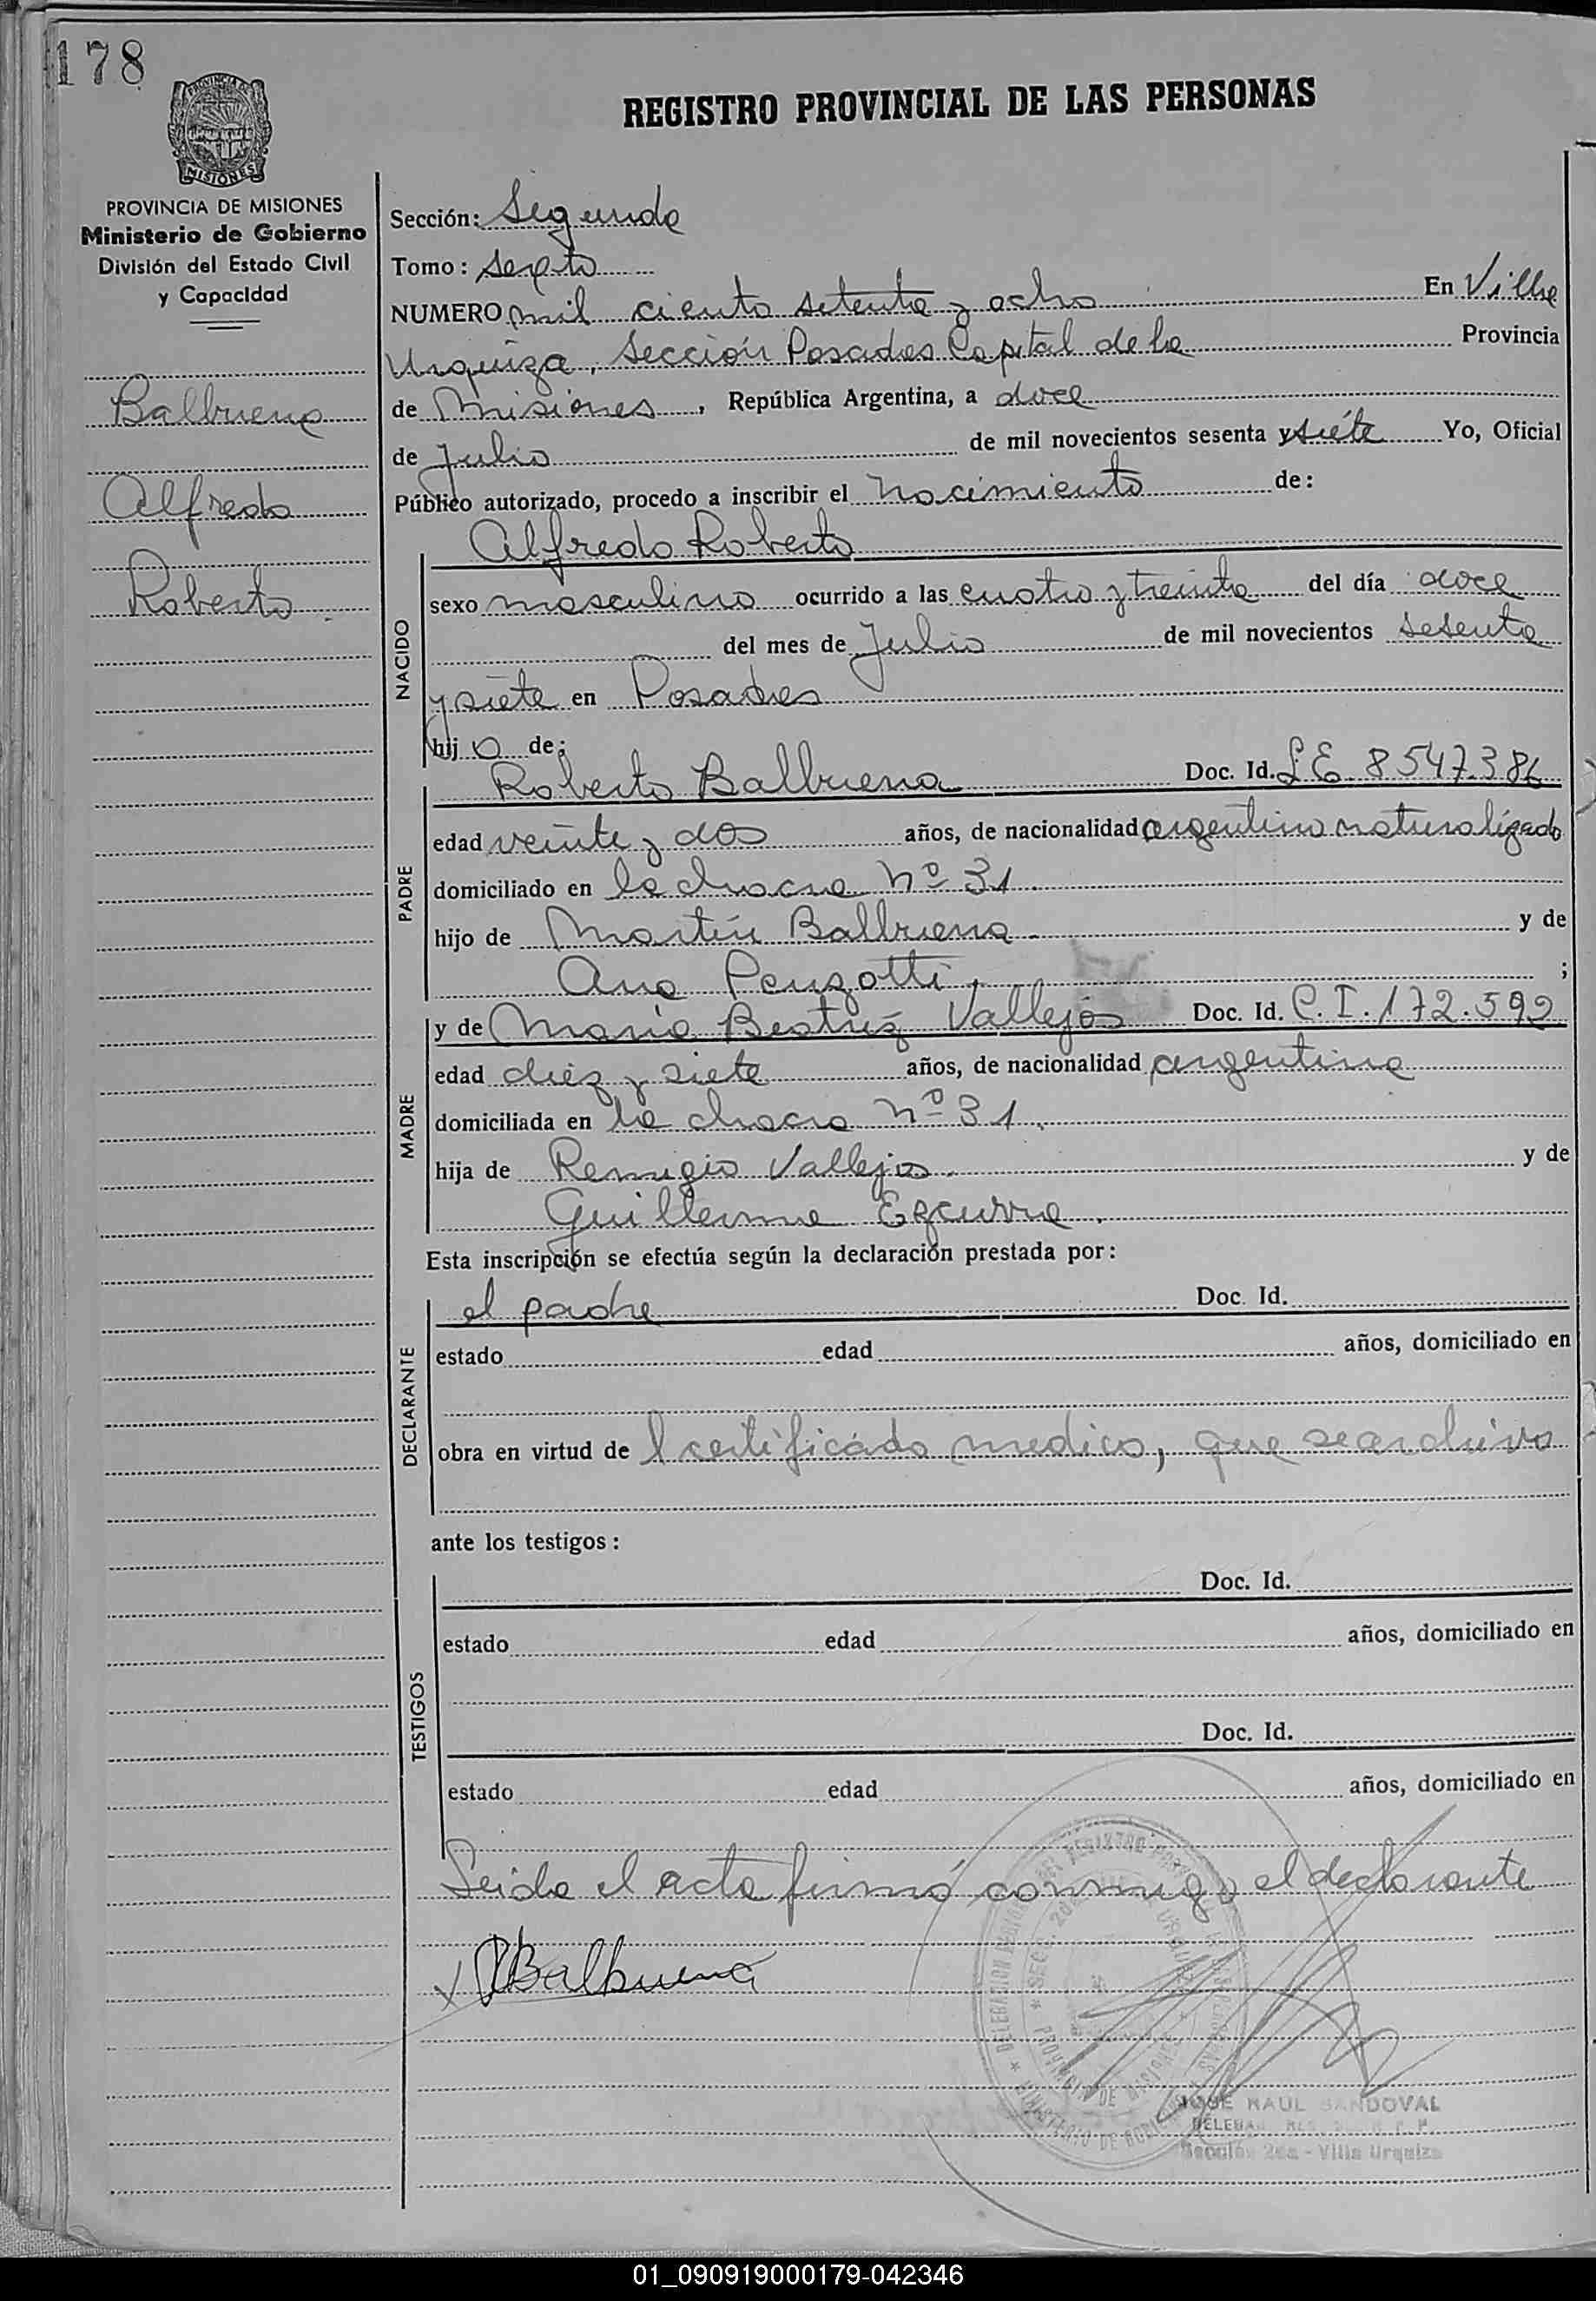 178
REGISTRO PROVINCIAL DE LAS PERSONAS
PROVINCIA DE MISIONES
Ministerio de Gobierno
División del Estado Civil
y Capacidad
Balbuena
Alfredo
Roberto
Sección: Segunda
Tomo: sexto
NUMERO mil ciento setenta y ocho En Villa
Urquiza, Sección Posadas Capital de la Provincia
de Misiones, República Argentina, a doce
de Julio de mil novecientos sesenta y siete Yo, Oficial
Público autorizado, procedo a inscribir el nacimiento de:
NACIDO
Alfredo Roberto
sexo masculino ocurrido a las cuatro y treinta del día doce
del mes de Julio de mil novecientos sesenta
y siete en Posadas
hijo de:
PADRE
Roberto Balbuena Doc. Id. L E 8547386
edad veinte y dos años, de nacionalidad argentino naturalizado
domiciliado en la chacra Nº 31
hijo de Martín Balbuena y de
Ana Penzotti ;
MADRE
y de María Beatriz Vallejos Doc. Id. C.I. 172.592
edad diez y siete años, de nacionalidad argentina
domiciliada en la chacra nº 31
hija de Remigio Vallejos y de
Guillerma Ezcurra
Esta inscripción se efectúa según la declaración prestada por:
DECLARANTE
el padre Doc. Id.
estado edad años, domiciliado en
obra en virtud de l certificado medico, que se archiva
ante los testigos:
TESTIGOS
Doc. Id.
estado edad años, domiciliado en
Doc. Id.
estado edad años, domiciliado en
Leida el acta firmó conmigo el declarante
x RBalbuena
JOSE RAUL SANDOVAL
Sección 2da - Villa Urquiza
01_090919000179-042346